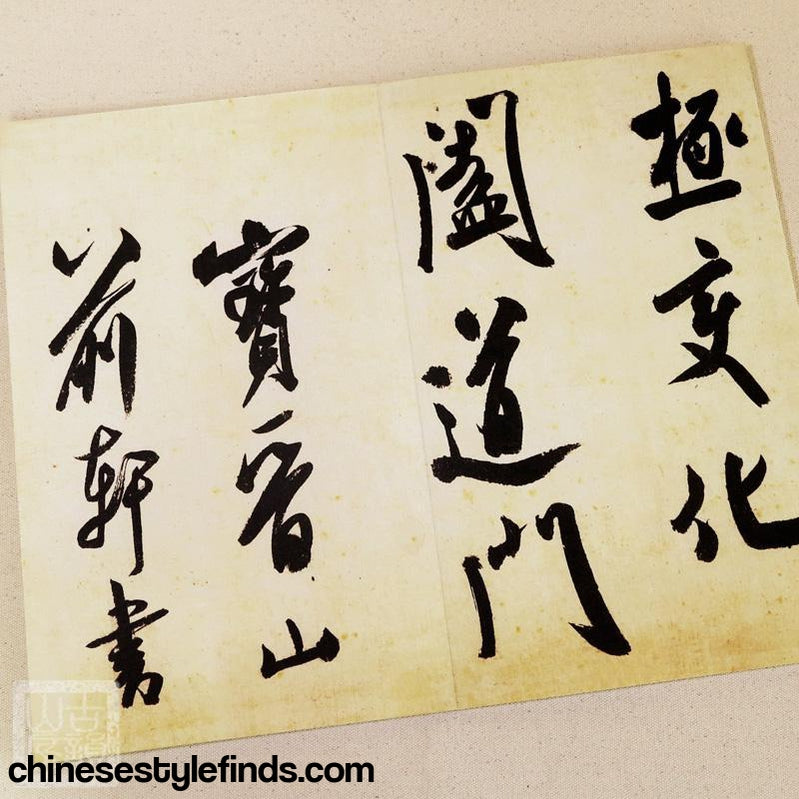 極變化
闔道門
寶晉山
前軒書
chinesestylefinds.com